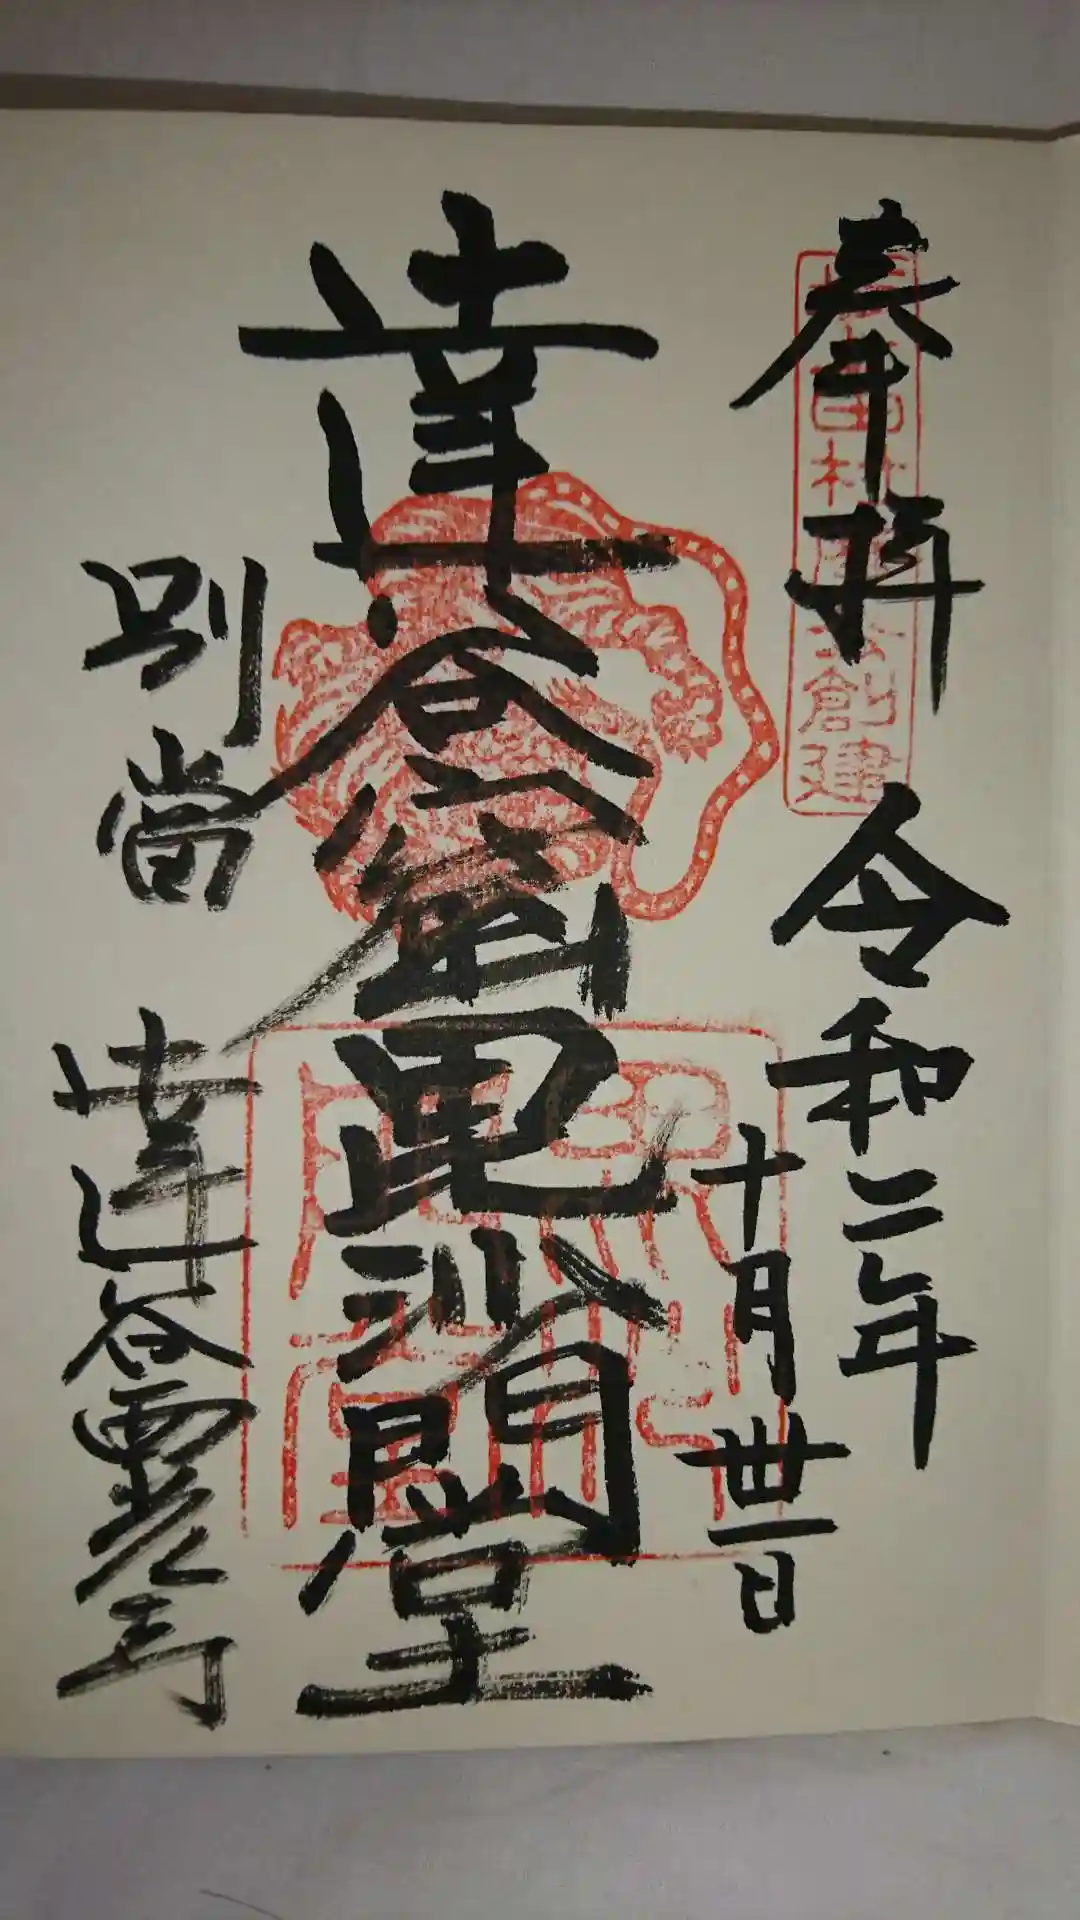 奉拝 令和二年
十月卅一日
達谷窟毘沙門堂
別當 達谷西光寺
創建